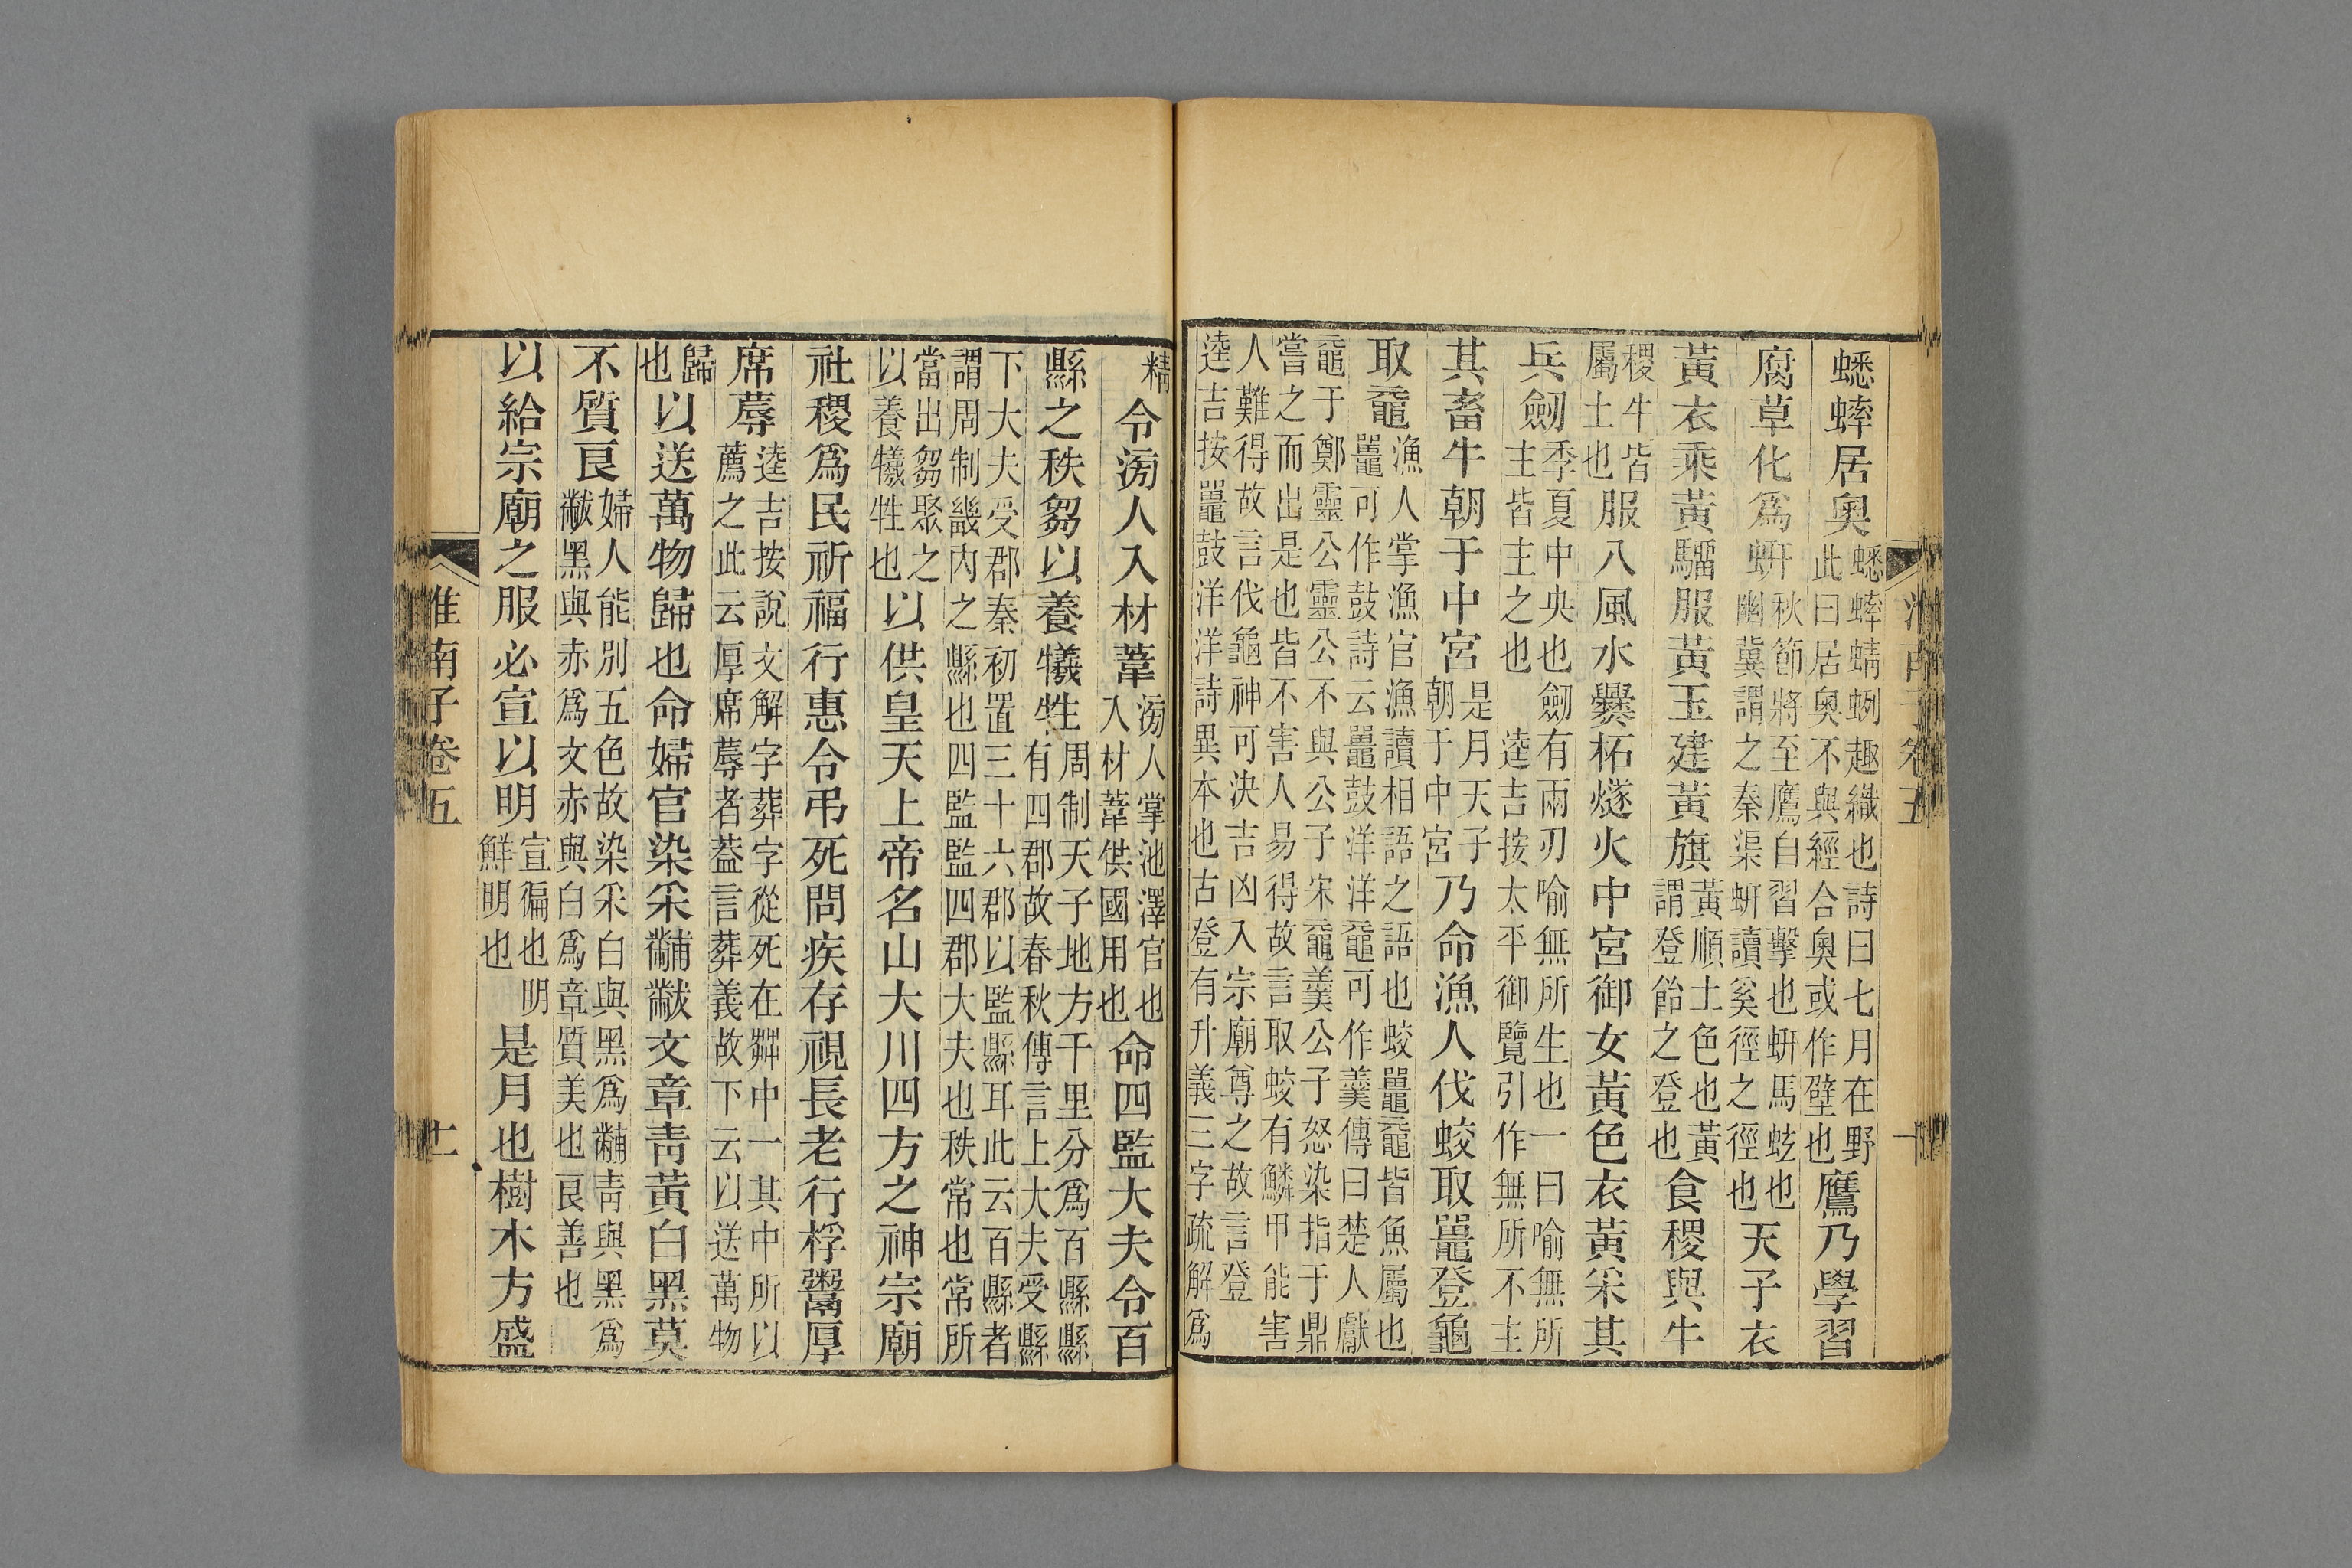 蟋蟀居奧蟋蟀蜻蛚趣織也詩曰七月在野此曰居奧不與經合奧或作壁也鷹乃學習
腐草化爲蚈秋節將至鷹自習擊也蚈馬蚿也幽冀謂之秦渠蚈讀奚徑之徑也天子衣
黃衣乘黃騮服黃玉建黃旗黃順土色也黃謂登飴之登也食稷與牛
稷牛皆屬土也服八風水爨柘燧火中宮御女黃色衣黃采其
兵劒季夏中央也劒有兩刃喻無所生也一曰喻無所主皆主之也 逵吉按太平御覽引作無所不主
其畜牛朝于中宮是月天子朝于中宮乃命漁人伐蛟取鼉登龜
取黿漁人掌漁官漁讀相語之語也蛟鼉黿皆魚屬也鼉可作鼓詩云鼉鼓洋洋黿可作羹傳曰楚人獻
黿于鄭靈公靈公不與公子宋黿羹公子怒染指于鼎嘗之而出是也皆不害人易得故言取蛟有鱗甲能害
人難得故言伐龜神可決吉凶入宗廟尊之故言登逵吉按鼉鼓洋洋詩異本也古登有升義三字疏解爲
精令滂人入材葦滂人掌池澤官也入材葦供國用也命四監大夫令百
縣之秩芻以養犧牲周制天子地方千里分爲百縣縣有四郡故春秋傳言上大夫受縣
下大夫受郡秦初置三十六郡以監縣耳此云百縣者謂周制畿內之縣也四監監四郡大夫也秩常也常所
當出芻聚之以養犧牲也以供皇天上帝名山大川四方之神宗廟
社稷爲民祈福行惠令弔死問疾存視長老行桴鬻厚
席蓐逵吉按說文解字葬字從死在茻中一其中所以薦之此云厚席蓐者葢言葬義故下云以送萬物
歸也以送萬物歸也命婦官染采黼黻文章靑黃白黑莫
不質良婦人能別五色故染采白與黑爲黼靑與黑爲黻黑與赤爲文赤與白爲章質美也良善也
以給宗廟之服必宣以明宣徧也明鮮明也是月也樹木方盛
淮南子卷五
十一